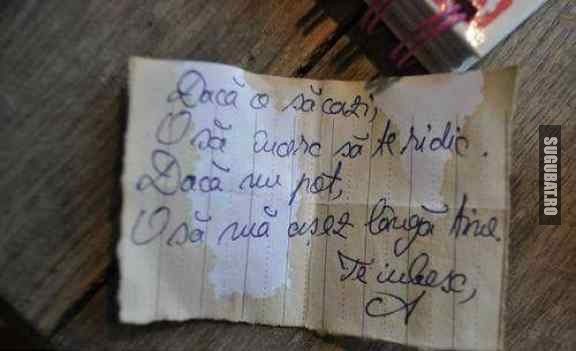 Dacă o să cazi,
O să încerc să te ridic.
Dacă nu pot,
O să mă așez lângă tine.
Te iubesc,
A
SUGUBAT.RO